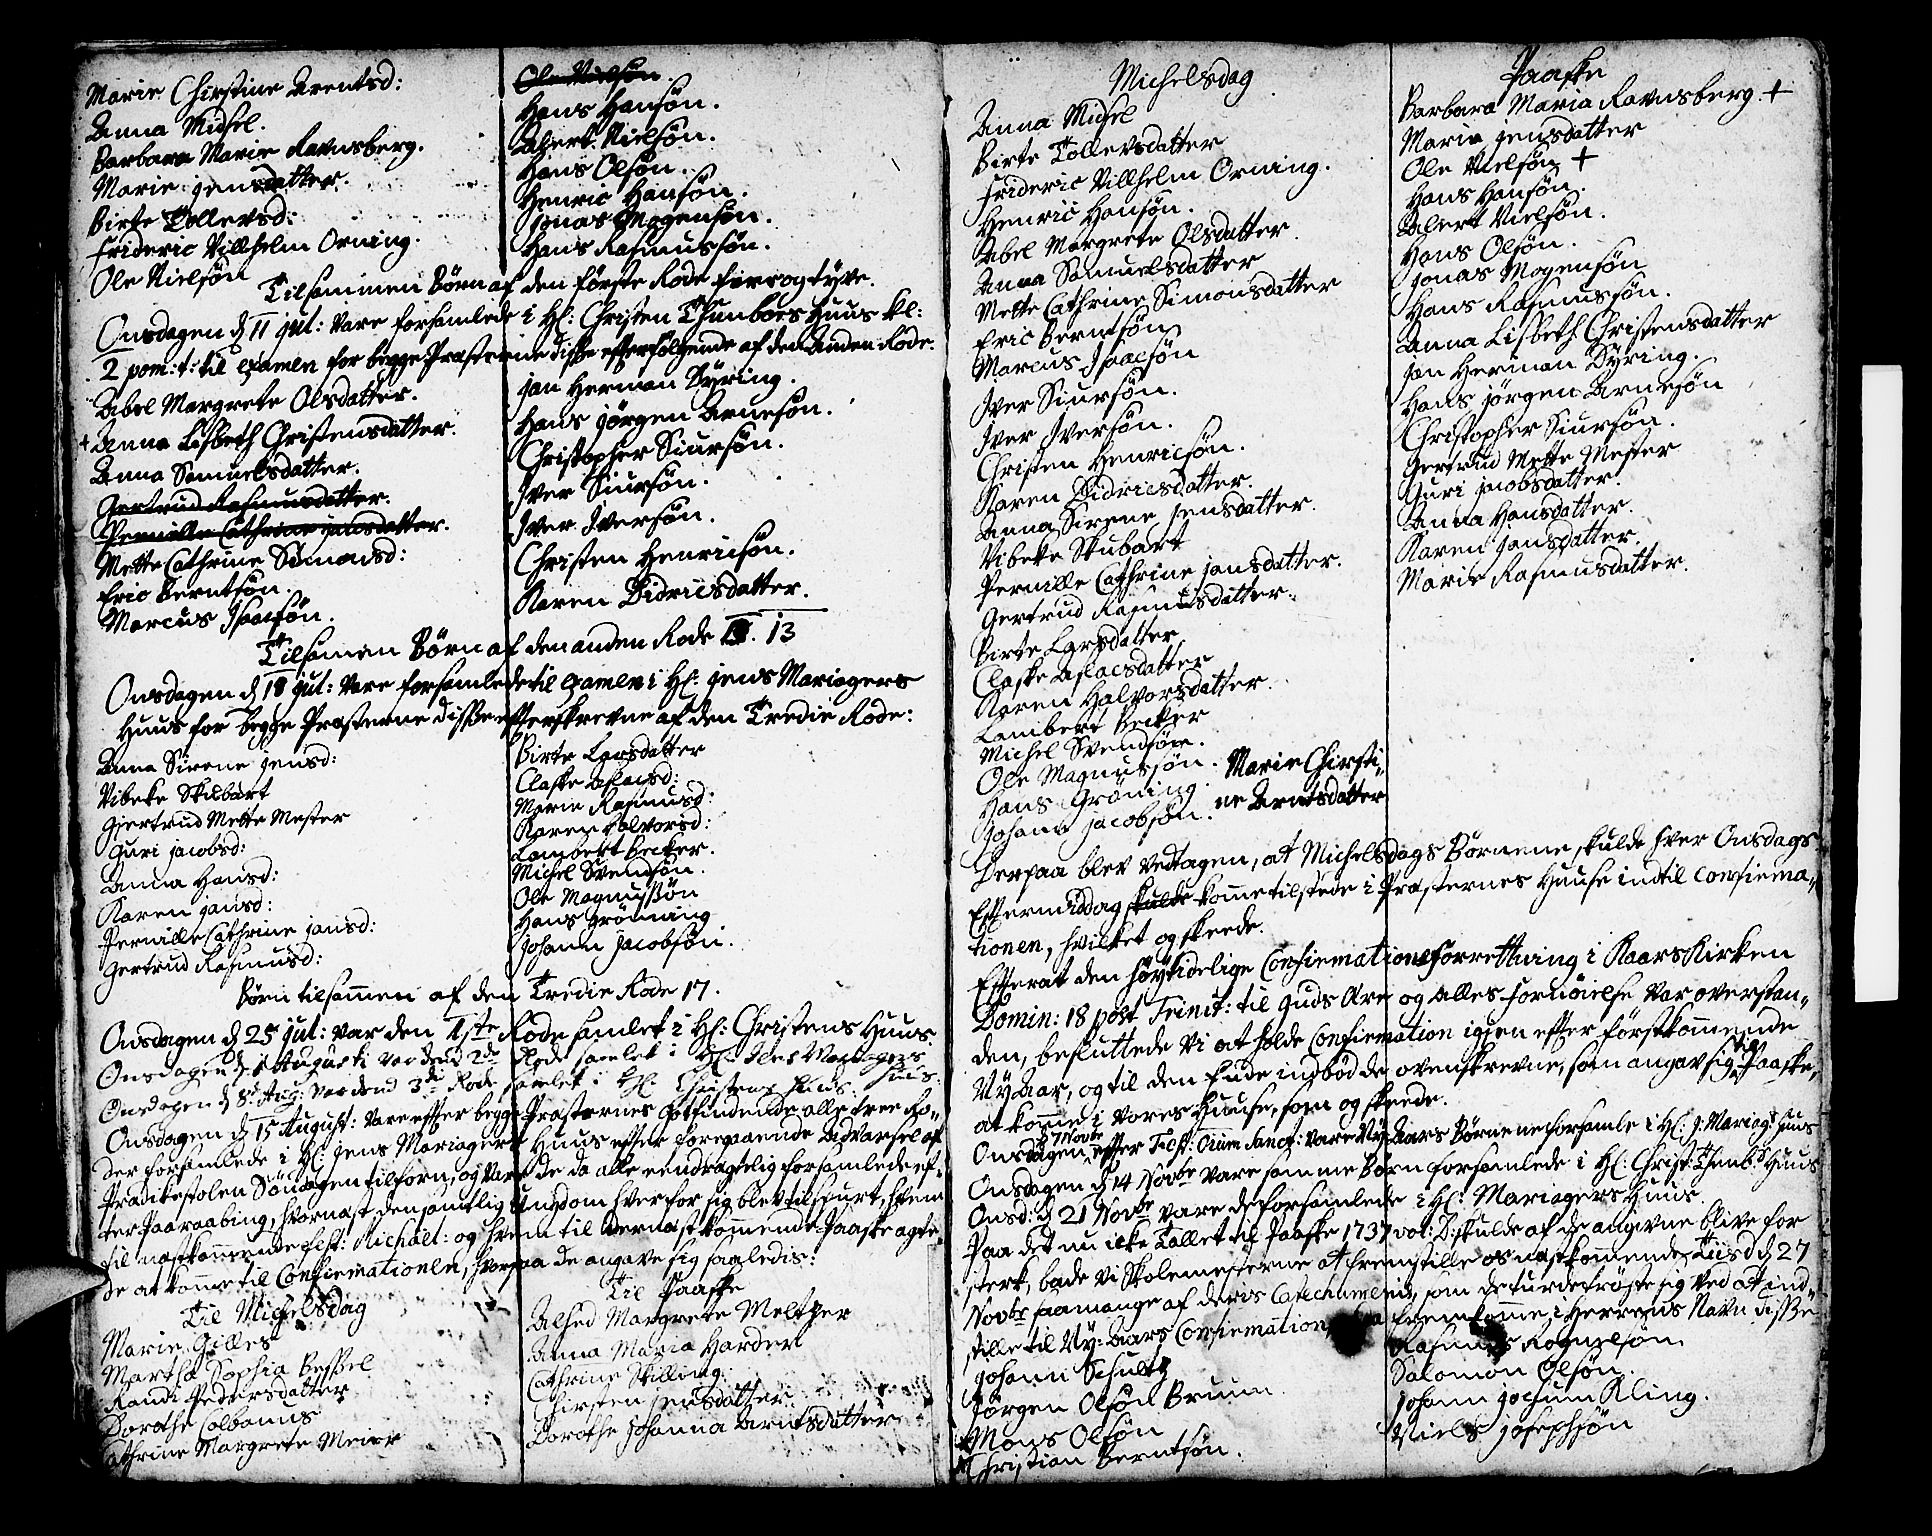 Marie Christine Arentsd:
Anna Michel.
Barbara Marie Ravnsberg.
Marie jensdatter.
Birte Tollevsd:
Frideric Villhelm Orning.
Ole Nielsøn
Ole Nielsøn.
Hans Hansøn.
Albert Nielsøn.
Hans Olsøn.
Henric Hansøn.
Jonas Mogensøn.
Hans Rasmussøn.
Tilsammen Børn af den første Rode fire og tyve.
Onsdagen d 11 jul: vare forsamlede i Hl: Christen Thunboes Huus Kl:
2 pom: t: til examen for begge Præsterne disse efterfølgende af den Anden Rode.
Abel Margrete Olsdatter.
+ Anna Lisbeth Christensdatter.
Anna Samuelsdatter.
Gertrud Rasmusdatter.
Pernille Cathrine jansdatter.
Mette Cathrine Simonsd:
Eric Berntsøn.
Marcus Isaacsøn.
jan Herman Dyring.
Hans jørgen Arnesøn.
Christopher Siursøn.
Iver Siursøn.
Iver Iversøn.
Christen Henricsøn.
Karen Didricsdatter.
Tilsamen Børn af den anden Rode 13
Onsdagen d 18 jul: vare forsamlede til examen i Hl: jens Mariagers
Huus for begge Præsterne disse efterskrevne af den Tredie Rode:
Anna Sirene jensd:
Vibeke Skubart
Gjertrud Mette Mester
Guri jacobsd:
Anna Hansd:
Karen jansd:
Pernille Cathrine jansd:
Gertrud Rasmusd:
Birte Larsdatter
Claske Aslacsd:
Marie Rasmusd:
Karen Halvorsd:
Lambert Becker.
Michel Svendsøn.
Ole Magnussøn
Hans Grønning
Johann Jacobsøn.
Børn tilsammen af den Tredie Rode 17.
Onsdagen d 25 jul: var den 1ste Rode samlet i Hl: Christens Huus.
Onsdagen d 1 Augusti var dend 2de Rode samlet i Hl: Jens Mariagers Huus.
Onsdagen d 8 Aug: var dend 3die Rode samlet i Hl: Christens Huus.
Onsdagen d 15 August: vare efter begge Præsternes Gotfindende alle tree Ro-
der forsamlede i Hl: jens Mariagers Huus efter foregaaende Advarsel af
Prædikestolen Søndagen tilforn, og vare de da alle eendragtelig forsamlede ef-
ter Paaraabing, hvornæst den samtlig Ungdom hver for sig blev tilspurt, hvem
til næstkommende Fest: Michael: og hvem til dernæst kommende Paaske agte-
de at komme til Confirmationen, hvorpaa de angave sig saaledis:
Til Michelsdag
Marie Gilles
Martha Sophia Bessel
Randi Pedersdatter
Dorothe Colbanus
Cathrine Margrete Meier
Til Paaske
Alhed Margrete Meltzer
Anna Maria Harder
Cathrine Skilling.
Chirsten jensdatter
Dorothe Johanna Arntsdatter
Michelsdag
Anna Michel
Birte Tollevsdatter
Frideric Villhelm Orning.
Henric Hansøn.
Abel Margrete Olsdatter.
Anna Samuelsdatter
Mette Cathrine Simonsdatter
Eric Berntsøn
Marcus Isaacsøn
Iver Siursøn.
Iver Iversøn.
Christen Henricsøn.
Karen Didricsdatter.
Anna Sirene jensdatter.
Vibeke Skubart
Pernille Cathrine jansdatter.
Gertrud Rasmusdatter.
Birte Larsdatter
Claske Aslacsdatter
Karen Halvorsdatter.
Lambert Becker
Michel Svendsøn.
Ole Magnussøn.
Hans Grøning.
Johann jacobsøn.
Marie Chirsti-
ne Arntsdatter
Paaske
Barbara Maria Ravnsberg. +
Maria jensdatter
Ole Nielsøn +
Hans Hansøn.
Albert Nielsøn.
Hans Olsøn.
Jonas Mogensøn
Hans Rasmussøn.
Anna Lisbeth Christensdatter
Jan Herman Dyring.
Hans jørgen Arnesøn
Christopher Siursøn.
Gertrud Mette Mester
Guri jacobsdatter.
Anna Hansdatter.
Karen jansdatter.
Marie Rasmusdatter.
Derpaa blev vedtagen, at Michelsdags Børnene skulde hver Onsdags
Eftermiddag skulde komme tilstede i Præsternes Huuse indtil Confirma-
tionen, hvilket og skeede.
Efter at den høytidelige Confirmations Forrettning i KaarsKirken
Domin: 18 post Trinit: til Guds Ære og alles Fornøielse var overstan-
den, besluttede vi at holde Confirmation igien efter førstkommende
NyAar, og til den Ende indbød de ovenskrevne, som angav sig til Paaske,
at komme i vores Huuse, som og skeede.
Onsdagen d 7 Novbr efter Fest: Oium Sanct: vare NyAars Børnene forsamle i Hl: J: Mariag: Huus
Onsdagen d 14 Novbr vare samme Børn forsamlede i Hl: Christ: Thunb: Huus
Onsd: d 21 Novbr vare de forsamlede i Hl: Mariagers Huus.
Paa det nu icke Tallet til Paaske 1737 vol: D: skulde af de angivne blive for
sterk, bade vi Skolemesterne at fremstille os næstkommende Tiisd: d 27
Novbr saa mange af deres Catechumenis, som de turde trøste sig ved at ind-
stille til Ny-Aars Confirmation, da fremkomme i Herrens Navn disse
Johann Schultz
Jørgen Olsøn Bruun
Mons Olsøn
Christian Berntsøn.
Rasmus Rognelsøn
Salomon Olsøn.
Johann Jochum Kling.
Niels josephsøn